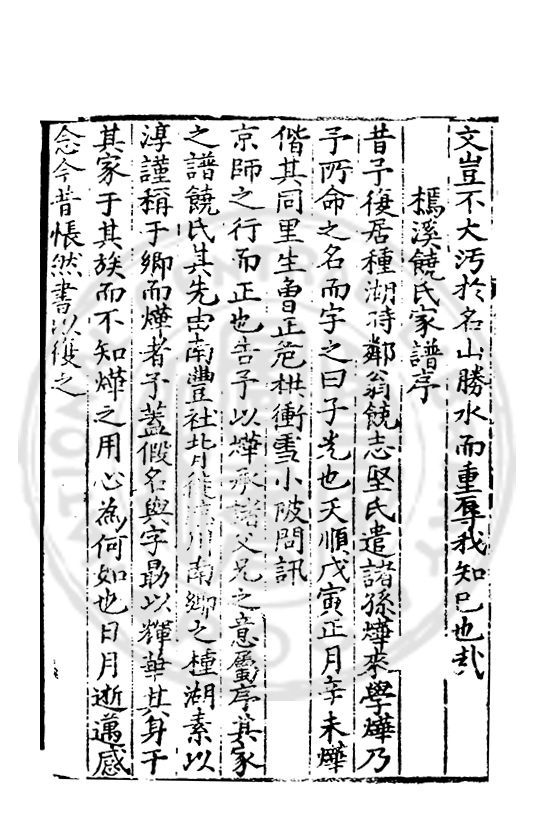 文豈不大汚於名山勝水而重辱我知巳也哉
槝溪饒氏家譜序
昔予復居種湖時鄰翁饒志堅氏遣諸孫燁來學燁乃
予所命之名而字之曰子光也天順戊寅正月辛未燁
偕其同里生曾正范栱衝雪小陂問訊
京師之行而正也告予以燁承諸父兄之意屬序其家
之譜饒氏其先由南豐社背徙 川南鄉之種湖素以
淳謹稱于鄉而燁者予蓋假名與字勗以輝華其身于
其家于其族而不知燁之用心為何如也日月逝邁感
念今昔悵然書以復之